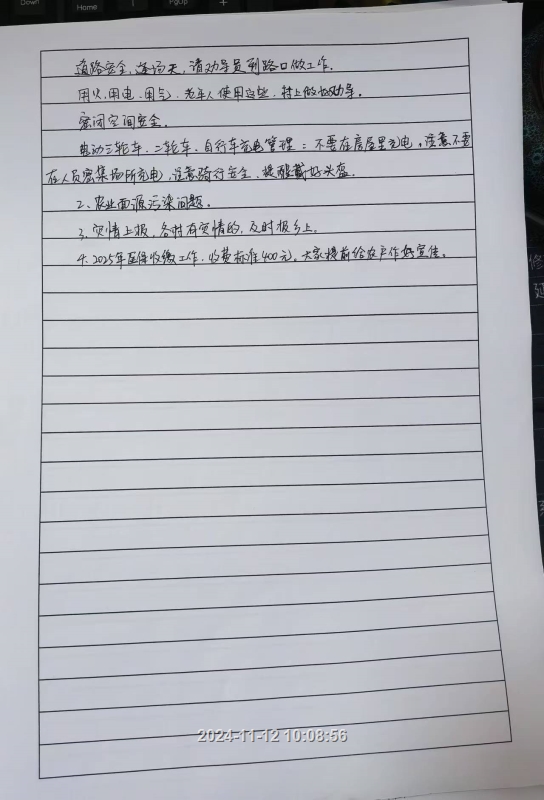 Down
Home
PgUp
+
道路安全,逢场天,请劝导员到路口做工作。
用火、用电、用气,老年人使用这些,村上做好劝导。
密闭空间安全。
电动三轮车、二轮车、自行车充电管理:不要在房屋里充电,注意不要
在人员密集场所充电,注意骑行安全,提醒戴好头盔。
2、农业面源污染问题。
3、灾情上报,各村有灾情的,及时报乡上。
4、2025年医保收缴工作,收费标准400元。大家提前给农户作好宣传。
2024-11-12 10:08:56